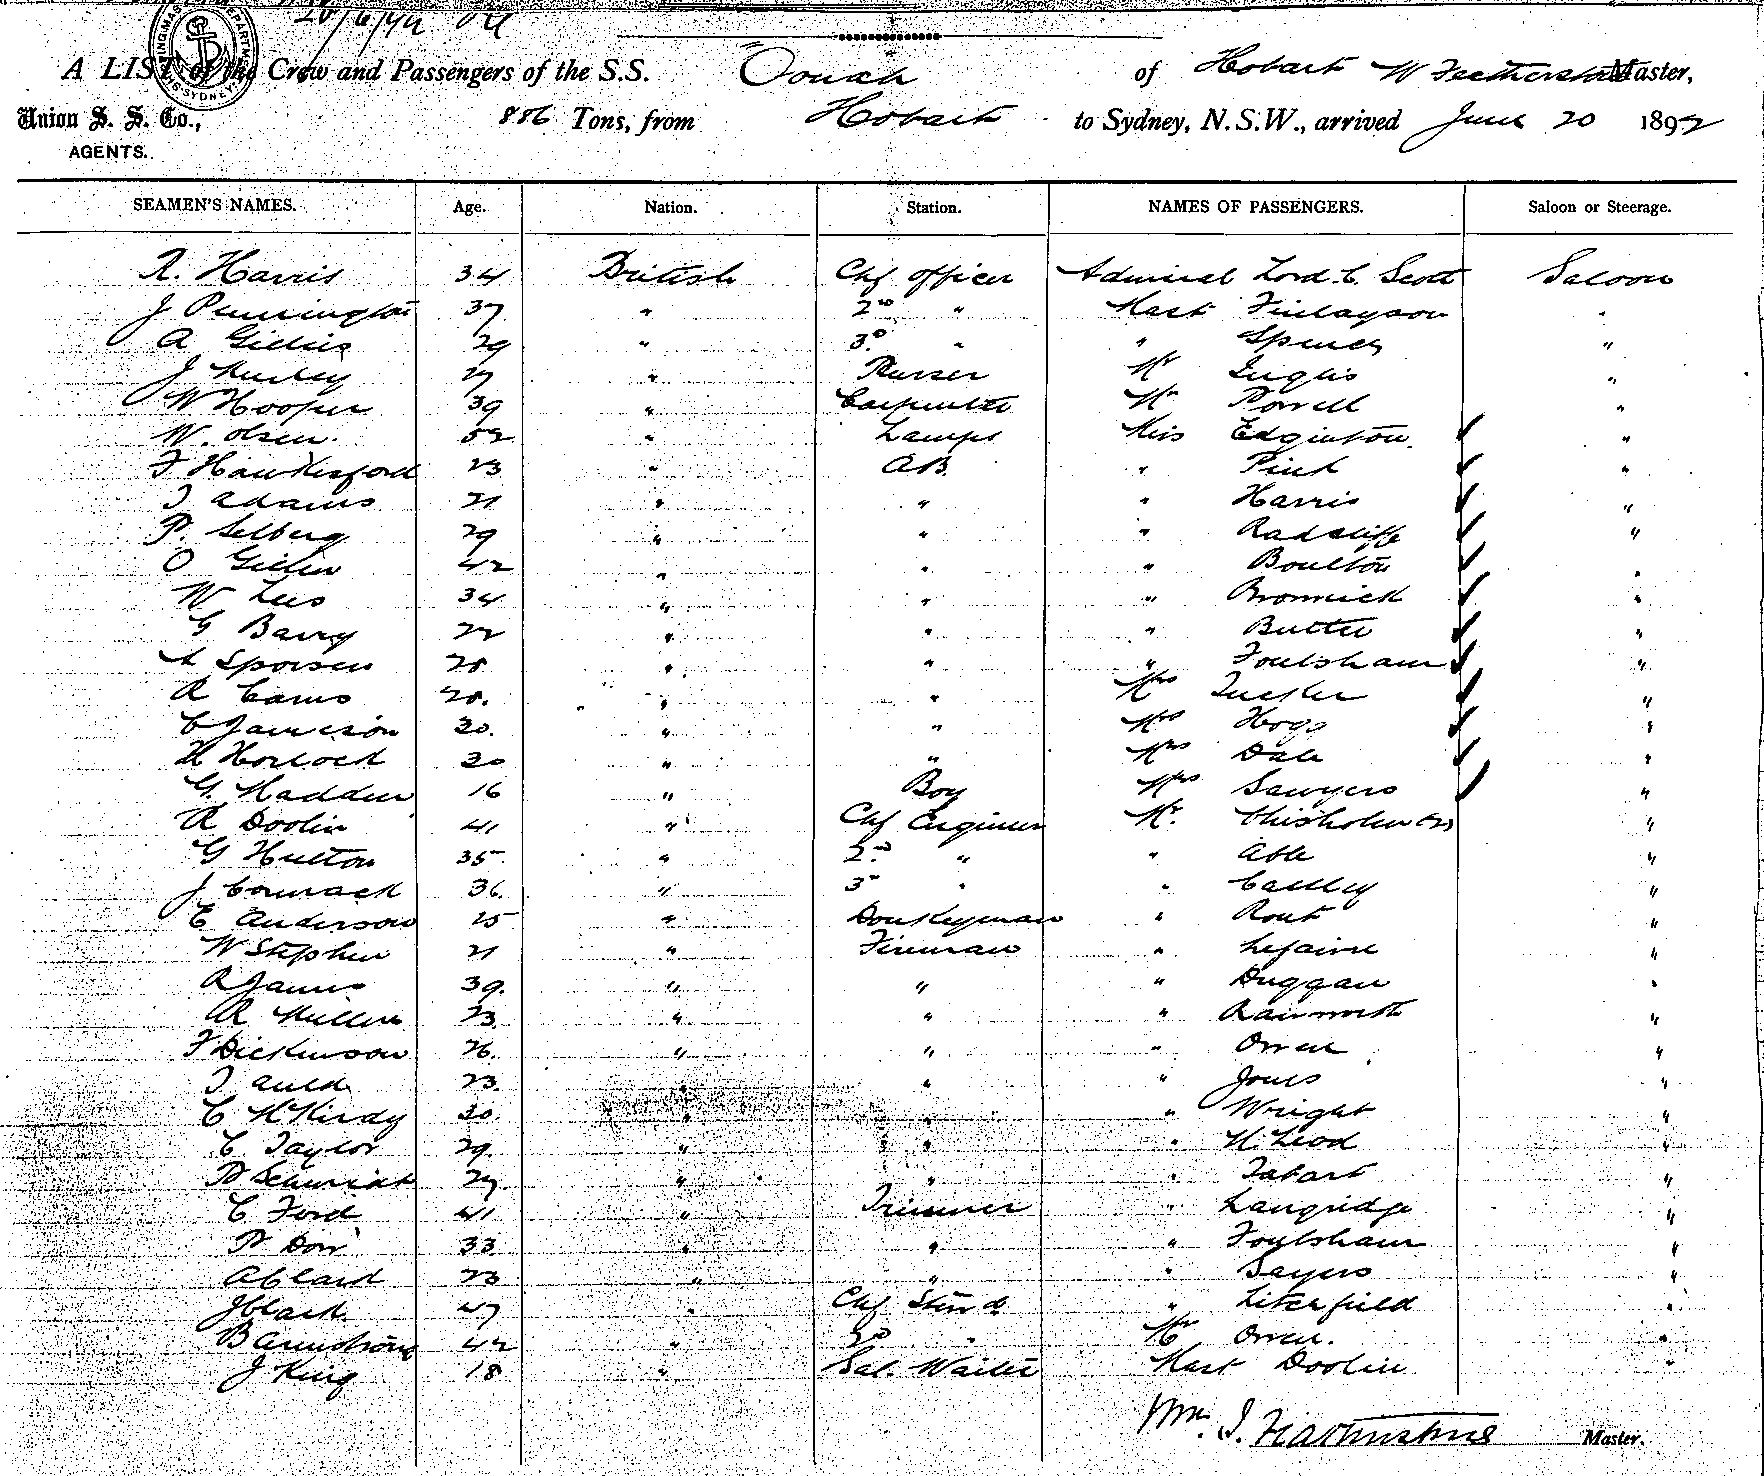 20/6/92
A LIST of the Crew and Passengers of the S.S. Oonah of Hobart W Featherstone Master,
Union S. S. Co., 886 Tons, from Hobart to Sydney, N.S.W., arrived June 20 1892
AGENTS.
SEAMEN'S NAMES. Age. Nation. Station. NAMES OF PASSENGERS. Saloon or Steerage.
R. Harris 34 British Chf Officer Admiral Lord C. Scott Saloon
J Pennington 37 " 2nd " Mast Finlayson "
A Gillies 29 " 3d " " Spencer "
J 27 " Purser Mr Inglis "
W Hooper 39 " Carpenter Mr Powell "
W. Olsen 52 " Lamps Miss Edginton "
F Hawkesford 23 " AB " Pink "
J Adams 21 " " " Harris "
P. Selberg 29 " " " Radcliffe "
O 42 " " " Boulton "
W Lees 34 " " " Bronwick "
G Barry 22 " " " Butler "
A 28 " " " Foulsham "
R Cairns 20. " " Mrs Tucker "
C Jameson 30. " " Mrs Hogg "
H Horlock 30 " " Mrs Dale "
G. Madden 16 " Boy Mrs Sawyers "
R Doolin 41 " Chf Engineer Mr. Chisholm "
G Hutton 35 " 2nd " " Able "
J Cormack 36. " 3d " " Cattley "
C Anderson 25 " Donkeyman " Rout "
W Stephen 21 " Fireman " "
R James 39. " " " Duggan "
R Miller 23 " " " Rainworth "
F Dickinson 26. " " " Owen "
J Auld 23. " " " Jones "
C McKirdy 30. " " " Wright "
C Taylor 29. " " " McLeod "
P Schmidt 27. " " " Tabart "
C Ford 41 " Trimmer " Langridge "
P Dow 33 " " " Foulsham "
A Claid 23 " " " Sayers "
J Clark 47 " Chf Stewd " Literfield "
B Armstrong 42 " 2d " Mr Owen. "
J King 18 " Sal. Waiter Mast Doolin "
Wm. J. Featherstone Master.